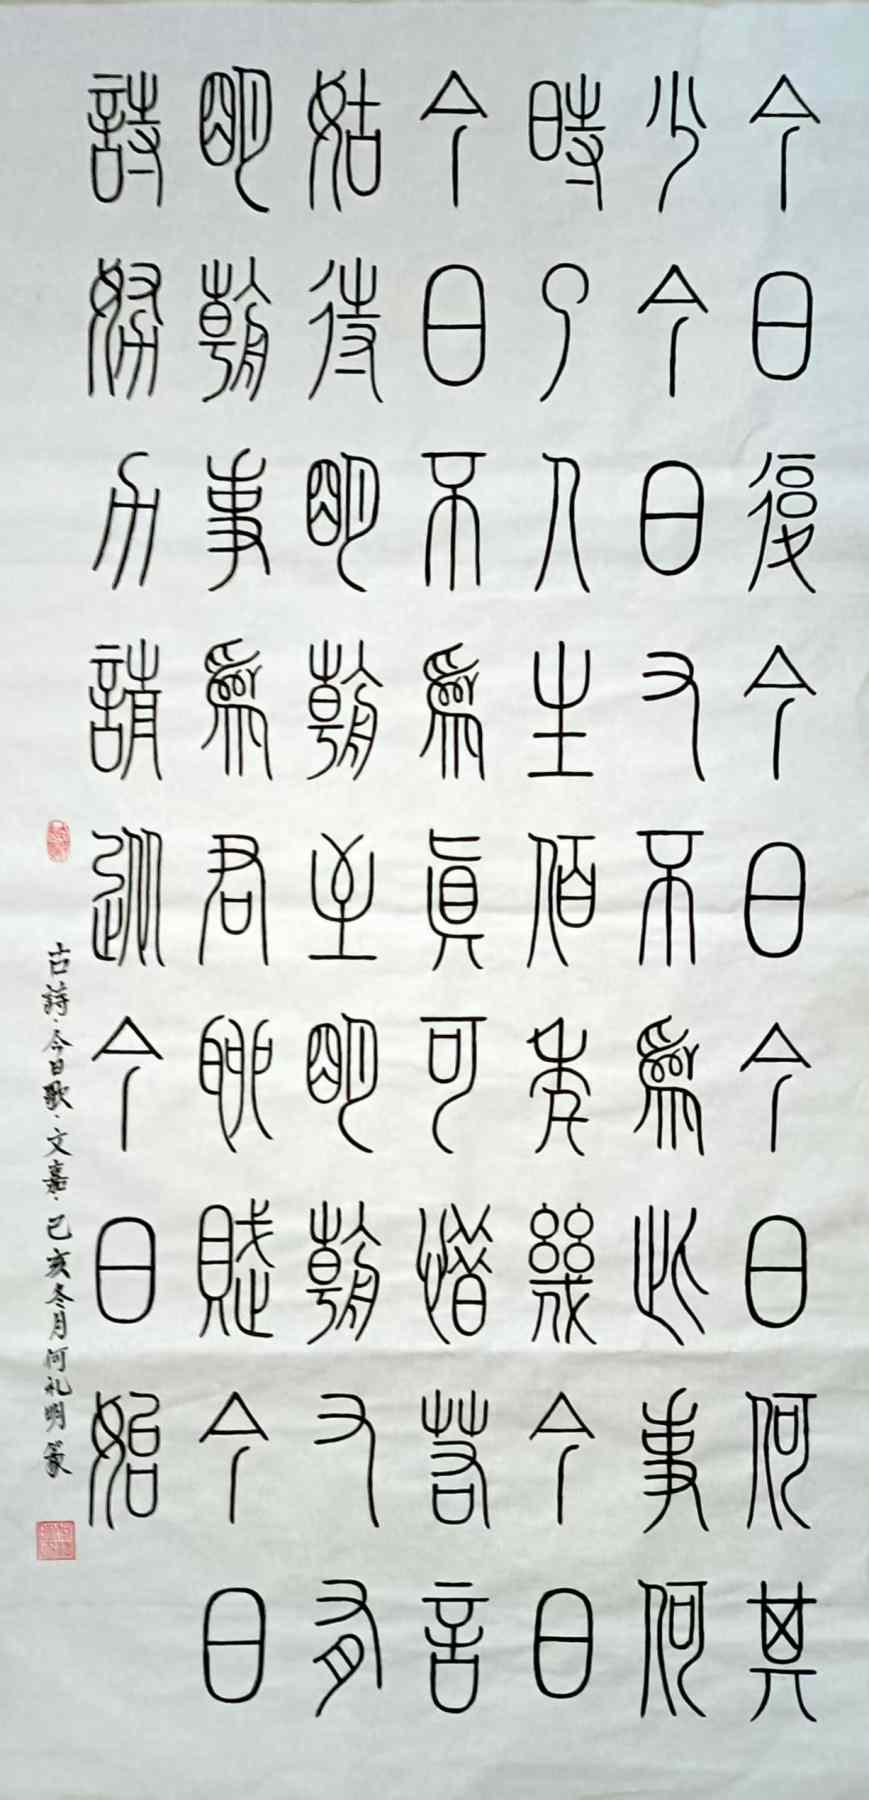 今日復今日今日何其
少今日又不為此事何
時了人生百年幾今日
今日不為真可惜若言
姑待明朝至明朝又有
明朝事為君聊賦今日
詩努力請從今日始
古詩·今日歌·文嘉·己亥冬月何礼明篆